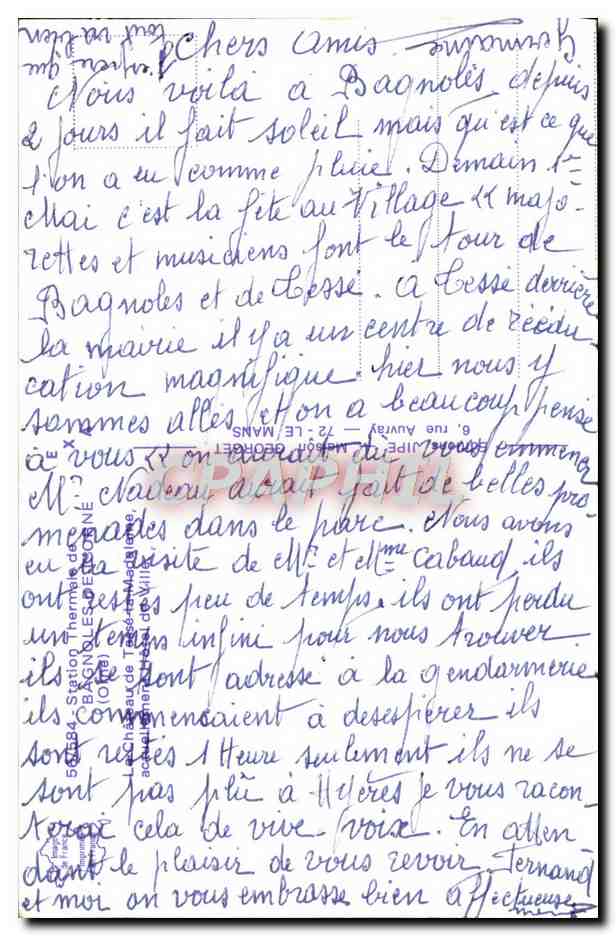 Chers Amis
Nous voilà à Bagnoles depuis
2 jours il fait soleil mais qu'est ce que
l'on a eu comme pluie. Demain 1er
Mai c'est la fête au Village << majo-
rettes et musiciens font le tour de
Bagnoles et de Tessé. A Tessé derrière
la mairie il y a un centre de réédu-
cation magnifique. hier nous y
sommes allés et on a beaucoup pensé
à vous << on aurait dû vous emmener
Mr Nadeau aurait fait de belles pro
menades dans le parc. Nous avons
eu la visite de Mr et Mme Cabaud ils
ont restés peu de temps. ils ont perdu
un temps infini pour nous trouver
ils se sont adressé à la gendarmerie
ils commencaient à desespérer ils
sont restés 1 Heure seulement ils ne se
sont pas plû à Hyères je vous racon-
terai cela de vive voix. En atten
dant le plaisir de vous revoir Fernand
et moi on vous embrasse bien affectueuse
ment
Germaine
J'espère que
tout va bien
6, rue Auvray — 72 - LE MANS
Maison GEORGET
56/684 - Station Thermale de
BAGNOLES-DE-L'ORNE
(Orne)
Le Château de Tessé-la-Madeleine,
actuellement Hôtel de Ville
CPAPHIL